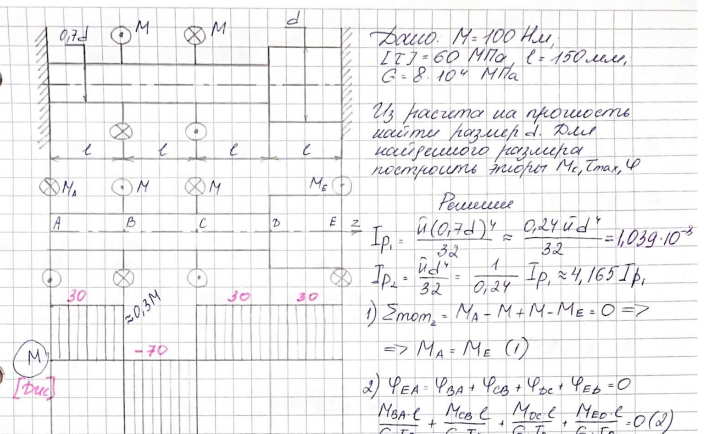 0,7d
M
M
d
l
l
l
l
M_A
M
M
M_E
A
B
C
D
E
z
30
≈0,3M
30
30
-70
M
[Дис]
Дано. M=100 Нм,
[τ]=60 МПа, l=150мм,
G=8·10⁴ МПа
Из расчета на прочность
найти размер d. Для
найденного размера
построить эпюры Mс, τmax, φ
Решение
Ip₁ = π(0,7d)⁴/32 ≈ 0,24πd⁴/32 = 1,039·10⁻³
Ip₂ = πd⁴/32 = 1/0,24 Ip₁ ≈ 4,165 Ip₁
1) Σmom_z = M_A - M + M - M_E = 0 =>
=> M_A = M_E (1)
2) φ_EA = φ_BA + φ_CB + φ_DC + φ_ED = 0
M_BA·l + M_CB l + M_DC l + M_ED·l = 0 (2)